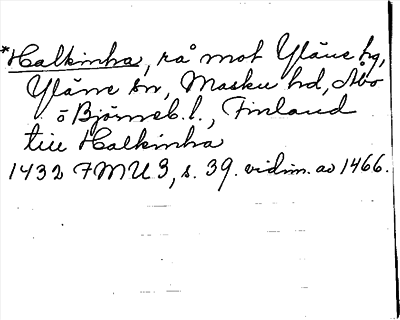 *Halkinha, rå mot Yläne hg,
Yläne sn, Masku hd, Åbo
o Björneb. l., Finland
till Halkinha
1432 FMU 3, s. 39. vidim. av 1466.